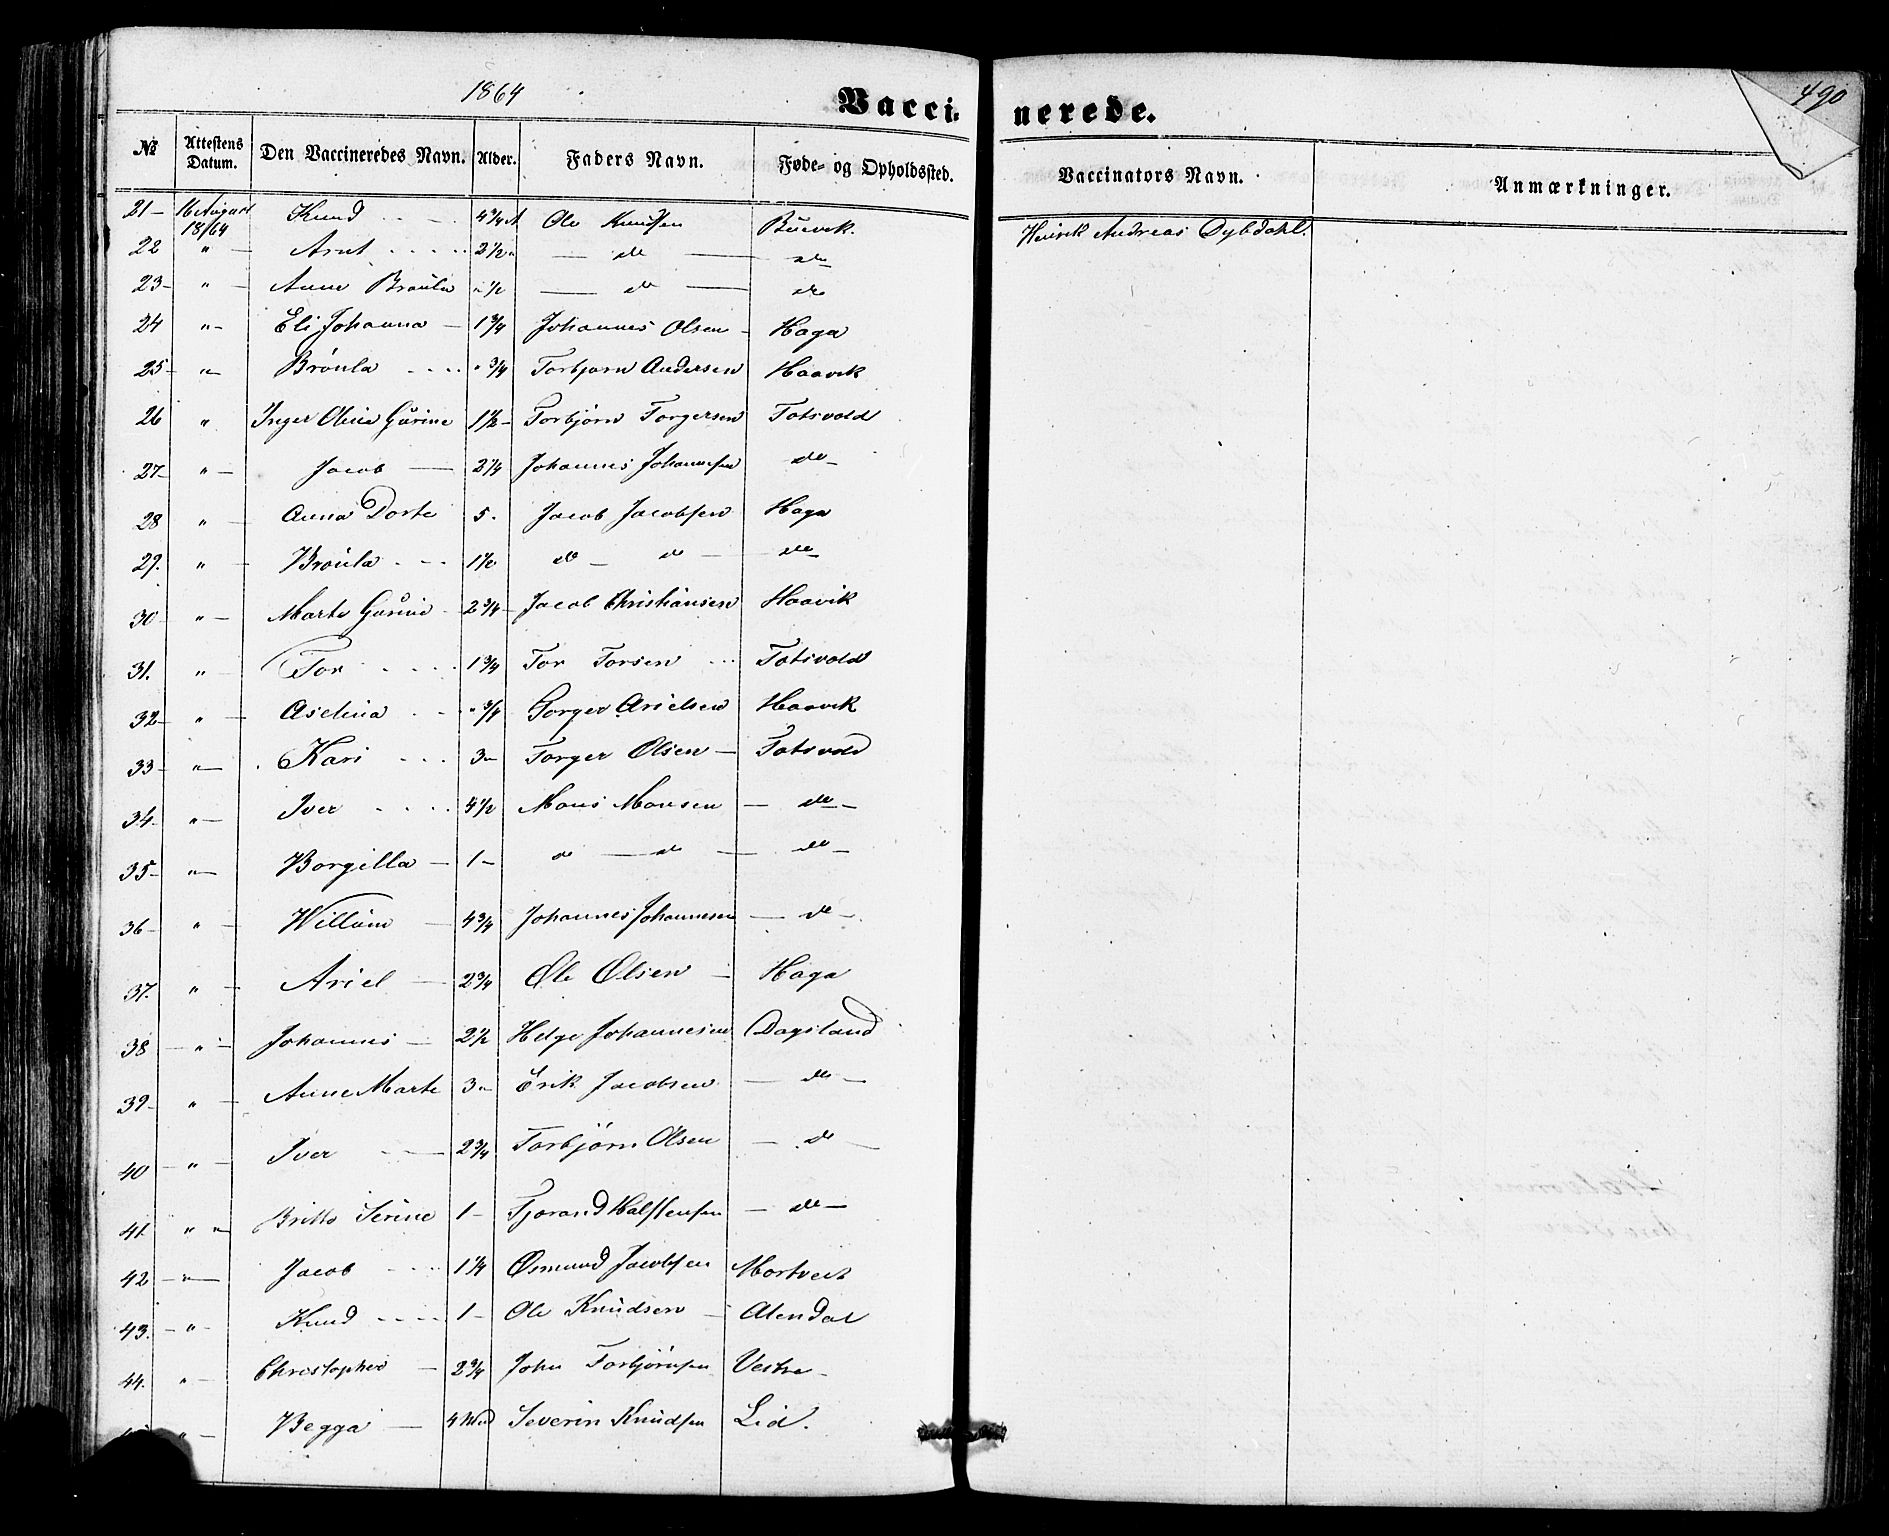 1864 Vaccinerede. 490
№ Attestens Datum. Den Vaccineredes Navn. Alder. Faders Navn. Føde- og Opholdssted. Vaccinators Navn. Anmærkninger.
21- 16 August 1864 Knud 4 3/4 A Ole Knudsen Buevik. Henrik Andreas Dybdahl.
22 " Arnt 2 1/2 " — do — do
23- " Anne Broula " 1/2 — do — do
24 " Eli Johanna 1 3/4 Johannes Olsen Haga
25- " Broula " 3/4 Torbjørn Andersen Haavik
26 " Inger Oline Gurine 1 1/2 Torbjørn Torgersen Totsvold
27- " Jacob 2 1/4 Johannes Johannesen do
28 " Anna Dorte 5. Jacob Jacobsen Haga
29. " Broula 1 1/2 do do do
30 " Marte Gurine 2 3/4 Jacob Christiansen Haavik
31. " Tor 1 3/4 Tor Torsen Totsvold
32- " Aselina " 3/4 Torger Arielsen Haavik
33- " Kari 3 " Torger Olsen Totsvold
34- " Iver 4 1/2 Mons Monsen do
35- " Borgilla 1- do do do
36- " Willum 4 3/4 Johannes Johannesen do
37. " Ariel 2 3/4 Ole Olsen Haga
38 " Johannes 2 1/2 Helge Johannesen Dagsland
39- " Anne Marte 3 " Erik Jacobsen do
40 " Iver 2 3/4 Torbjørn Olsen do
41. " " Britte Serine 1- Tjorand Halstensen do
42 " Jacob 1 1/4 Osmund Jacobsen Mortveit
43. " Knud 1- Ole Knudsen Alendal
44. " Christopher 2 3/4 John Torbjørnsen Vestre
" Begga 4 Severin Knudsen Lid.